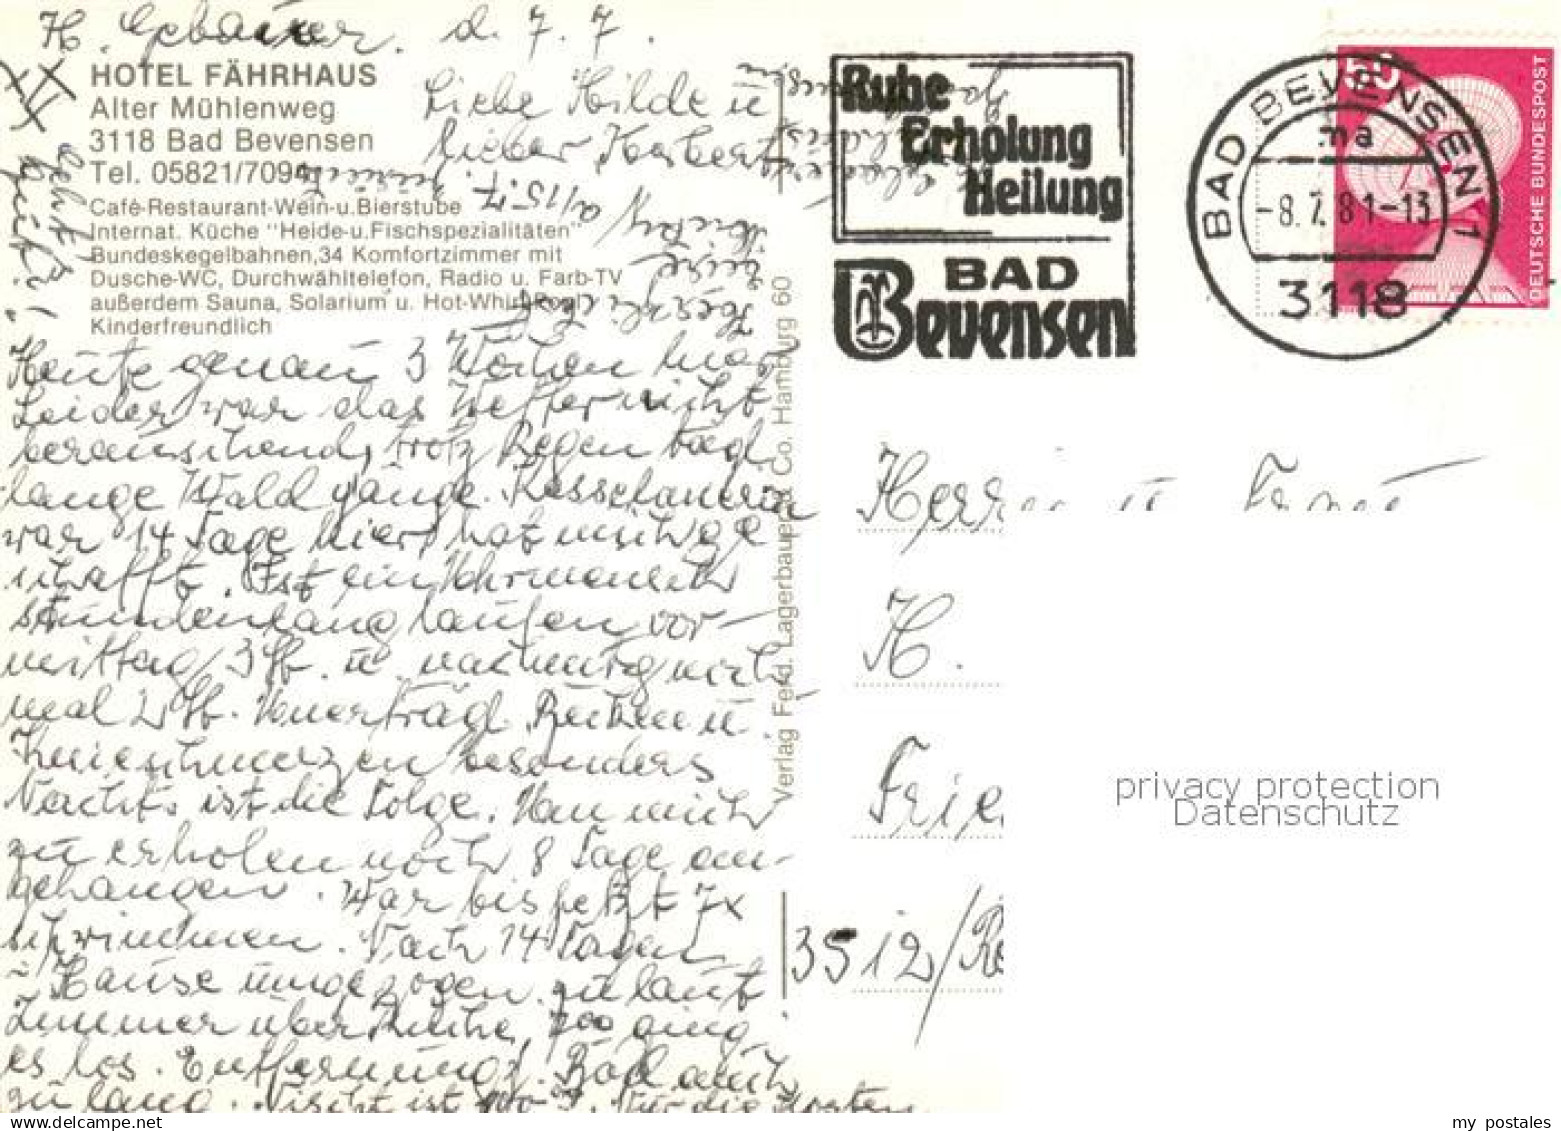 H. Gebauer. d. 7. 7.
HOTEL FÄHRHAUS
Alter Mühlenweg
3118 Bad Bevensen
Tel. 05821/709
Café-Restaurant-Wein-u.Bierstube
Internat. Küche "Heide-u.Fischspezialitäten"
Bundeskegelbahnen,34 Komfortzimmer mit
Dusche-WC, Durchwähltelefon, Radio u. Farb-TV
außerdem Sauna, Solarium u. Hot-Whirl-Pool
Kinderfreundlich
Liebe Hilde u
lieber Herbert
Heute genau 3 Wochen hier,
Leider war das Wetter nicht
berauschend, trotz Regen tägl.
lange Waldgänge.
war 14 Tage hier, hat mich ge
schafft. Ist ein
stundenlang laufen vor-
mittag 3 Std. u. nachmittag noch
mal 2 Std. Rücken u.
Knieschmerzen besonders
Nachts ist die Folge. Nun mich
zu erholen noch 8 Tage an-
gehangen. War bis jetzt 7x
schwimmen. Nach 14 Tagen
i. Hause umgezogen. zu laut
Zimmer über Küche, 7⁰⁰ ging
es los. Entfernung z. Bad auch
zu lang. Für die Kosten
Verlag Ferd. Lagerbauer & Co. Hamburg 60
Ruhe
Erholung
Heilung
BAD
Bevensen
BAD BEVENSEN 1
ma
-8.7.81-13
3118
50
DEUTSCHE BUNDESPOST
Herrn u Frau
H.
Frie
3512/Re
privacy protection
Datenschutz
my postales